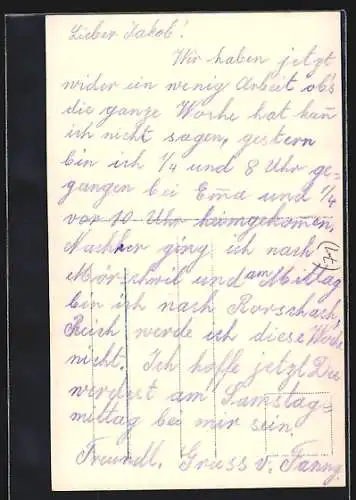 Lieber Jakob!
Wir haben jetzt
wider ein wenig Arbeit ob's
die ganze Woche hat kan̄
ich nicht sagen, gestern
bin ich 1/4 und 8 Uhr ge-
gangen bei Em̄a und 1/4
vor 10 Uhr heimgekom̄en,
Nachher ging ich nach
Mörschwil und am Mittag
bin ich nach Rorschach,
Reich werde ich diese Woche
nicht. Ich hoffe jetzt Du
werdest am Samstag-
mittag bei mir sein.
Freundl. Gruss v. Fanny.
(71)